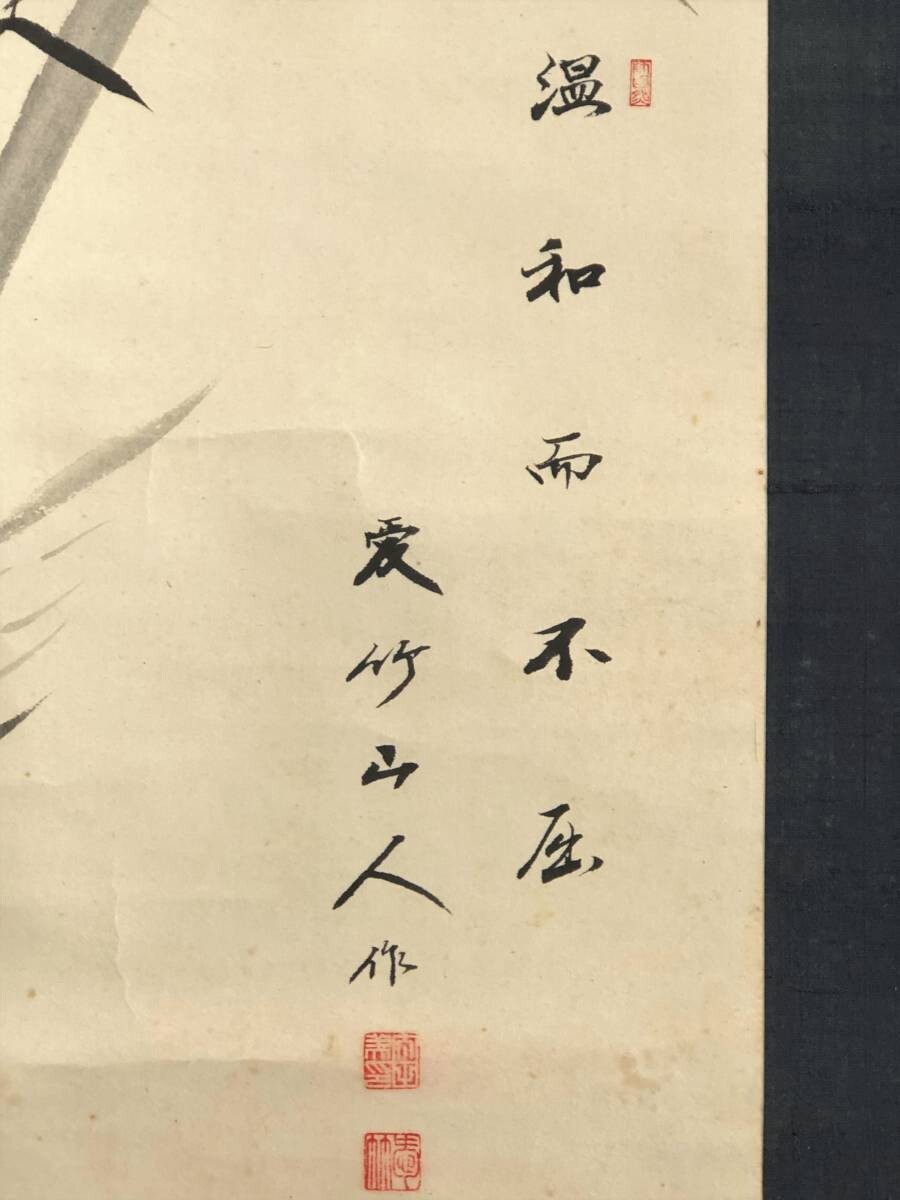 温和而不屈
愛竹山人作